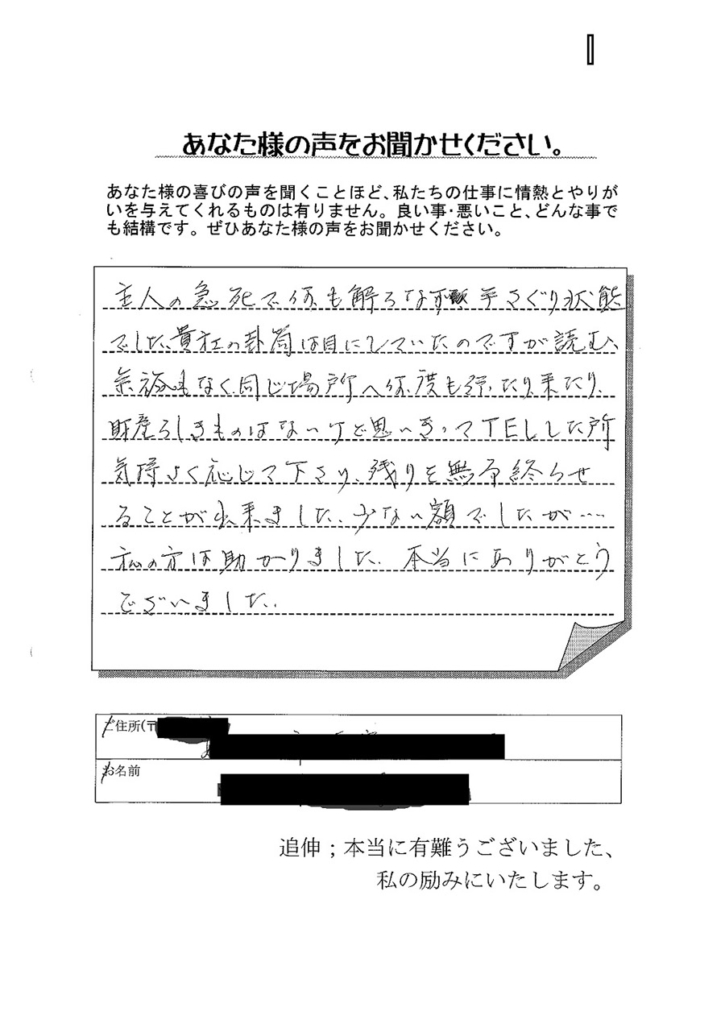 あなた様の声をお聞かせください。
あなた様の喜びの声を聞くことほど、私たちの仕事に情熱とやりが
いを与えてくれるものは有りません。良い事・悪いこと、どんな事で
も結構です。ぜひあなた様の声をお聞かせください。
主人の急死で何も解らなず手さぐり状態
でした、貴社の封筒は目にしていたのですが読む、
余裕もなく、同じ場所へ何度も行ったり来たり、
財産らしきものはないけど思いきってTELした所
気持よく応じて下さり、残りを無事終らせ
ることが出来ました、少ない額でしたが……
私の方は助かりました、本当にありがとう
ございました、
ご住所(〒
お名前
追伸;本当に有難うございました、
私の励みにいたします。